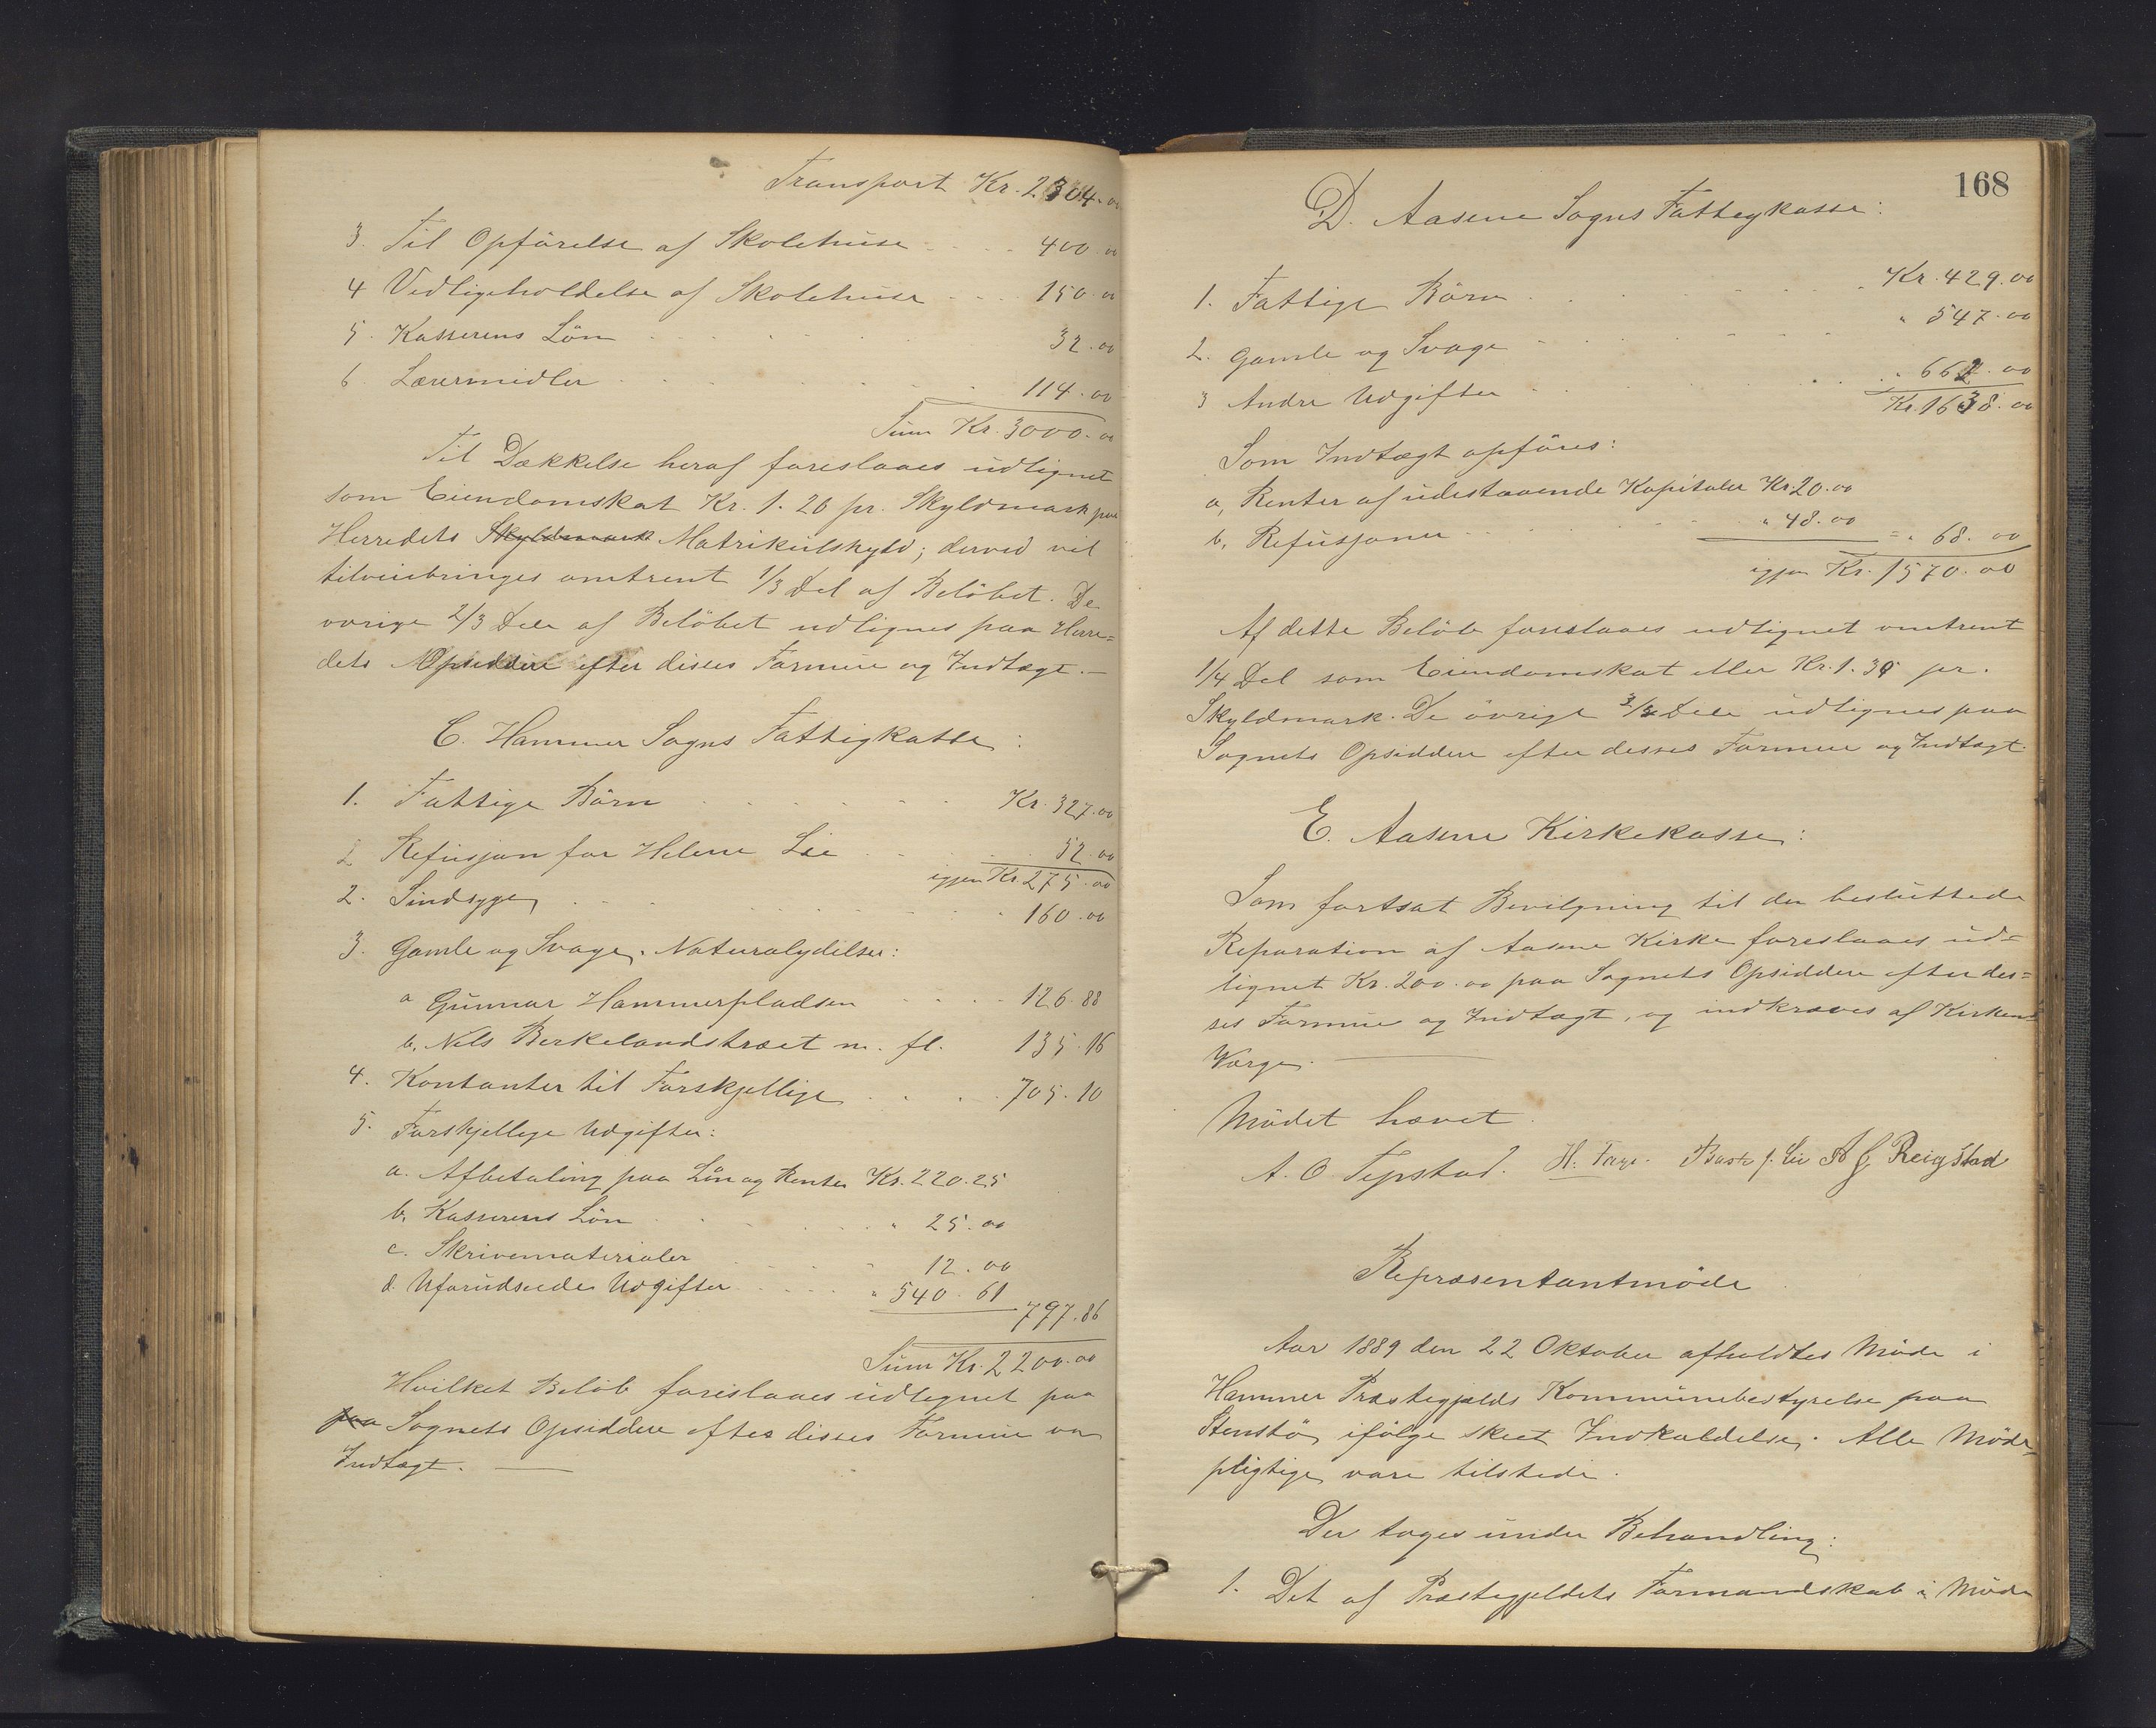 Transport Kr. 2304.00
3. Til Opförelse af Skolehuse 400.00
4 Vedligeholdelse af Skolehuse 150.00
5. Kasserens Lön 32.00
6. Lærermidler 114.00
Sum Kr. 3000.00
Til Dækkelse heraf foreslaaes udlignet
som Eiendomskat Kr. 1.20 pr. Skyldmark paa
Herredets Skyldmark Matrikulskyld; derved vil
tilveiebringes omtrent 1/3 Del af Belöbet. De
övrige 2/3 Dele af Belöbet udlignes paa Herre=
dets Opsiddere efter disses Formue og Indtægt.—
C. Hammer Sogns Fattigkasse:
1. Fattige Börn Kr. 327.00
2 Refusjon for Helene Lie 52.00
igjen Kr. 275.00
2. Sindsyge 160.00
3. Gamle og Svage. Naturalydelser:
a Gunnar Hammerpladsen 126.88
b, Nels Berkelandstræet m. fl. 135.16
4. Kontanter til Forskjellige 705.10
5. Forskjellige Udgifter:
a. Afbetaling paa Lån og Renter Kr. 220.25
b, Kasserens Lön " 25.00
c. Skrivematerialer " 12.00
d. Uforudseede Udgifter " 540.61
797.86
Sum Kr. 2200.00
Hvilket Belöb foreislaaes udlignet paa
paa Sognets Opsiddere efter disses Formue og
Indtægt. —
168
D. Aasene Sogns Fattigkasse:
1. Fattige Börn Kr. 429.00
2. Gamle og Svage " 547.00
3 Andre Udgifter " 662.00
Kr. 1638.00
Som Indtægt opföres:
a, Renter af udestaaende Kapitaler Kr. 20.00
b, Refusjoner " 48.00 = " 68.00
igjen Kr. 1570.00
Af dette Belöb foreslaaes udlignet omtrent
1/4 Del som Eiendomskat eller Kr. 1.35 pr.
Skyldmark. De övrige 3/4 Dele udlignes paa
Sognets Opsiddere efter desses Formue og Indtægt.
E. Aasene Kirkekasse:
Som fortsat Bevilgning til den besluttede
Reparation af Aasene Kirke foreslaaes ud=
lignet Kr. 200.00 paa Sognets Opsiddere efter des=
ses Formue og Indtægt, og indkræves af Kirkens
Værge. —
Mödet hævet.
A. O. Tepstad. H. Berge Reigstad
Repræsentantmöde
Aar 1889 den 22 Oktober afholdtes Möde i
Hammer Præstegjælds Kommunebestyrelse paa
Stenstö, ifölge skeet Indkaldelse. Alle Möde=
pligtige vare tilstede.
Der toges under Behandling:
1. Det af Præstegjeldets Formandskab i Möde